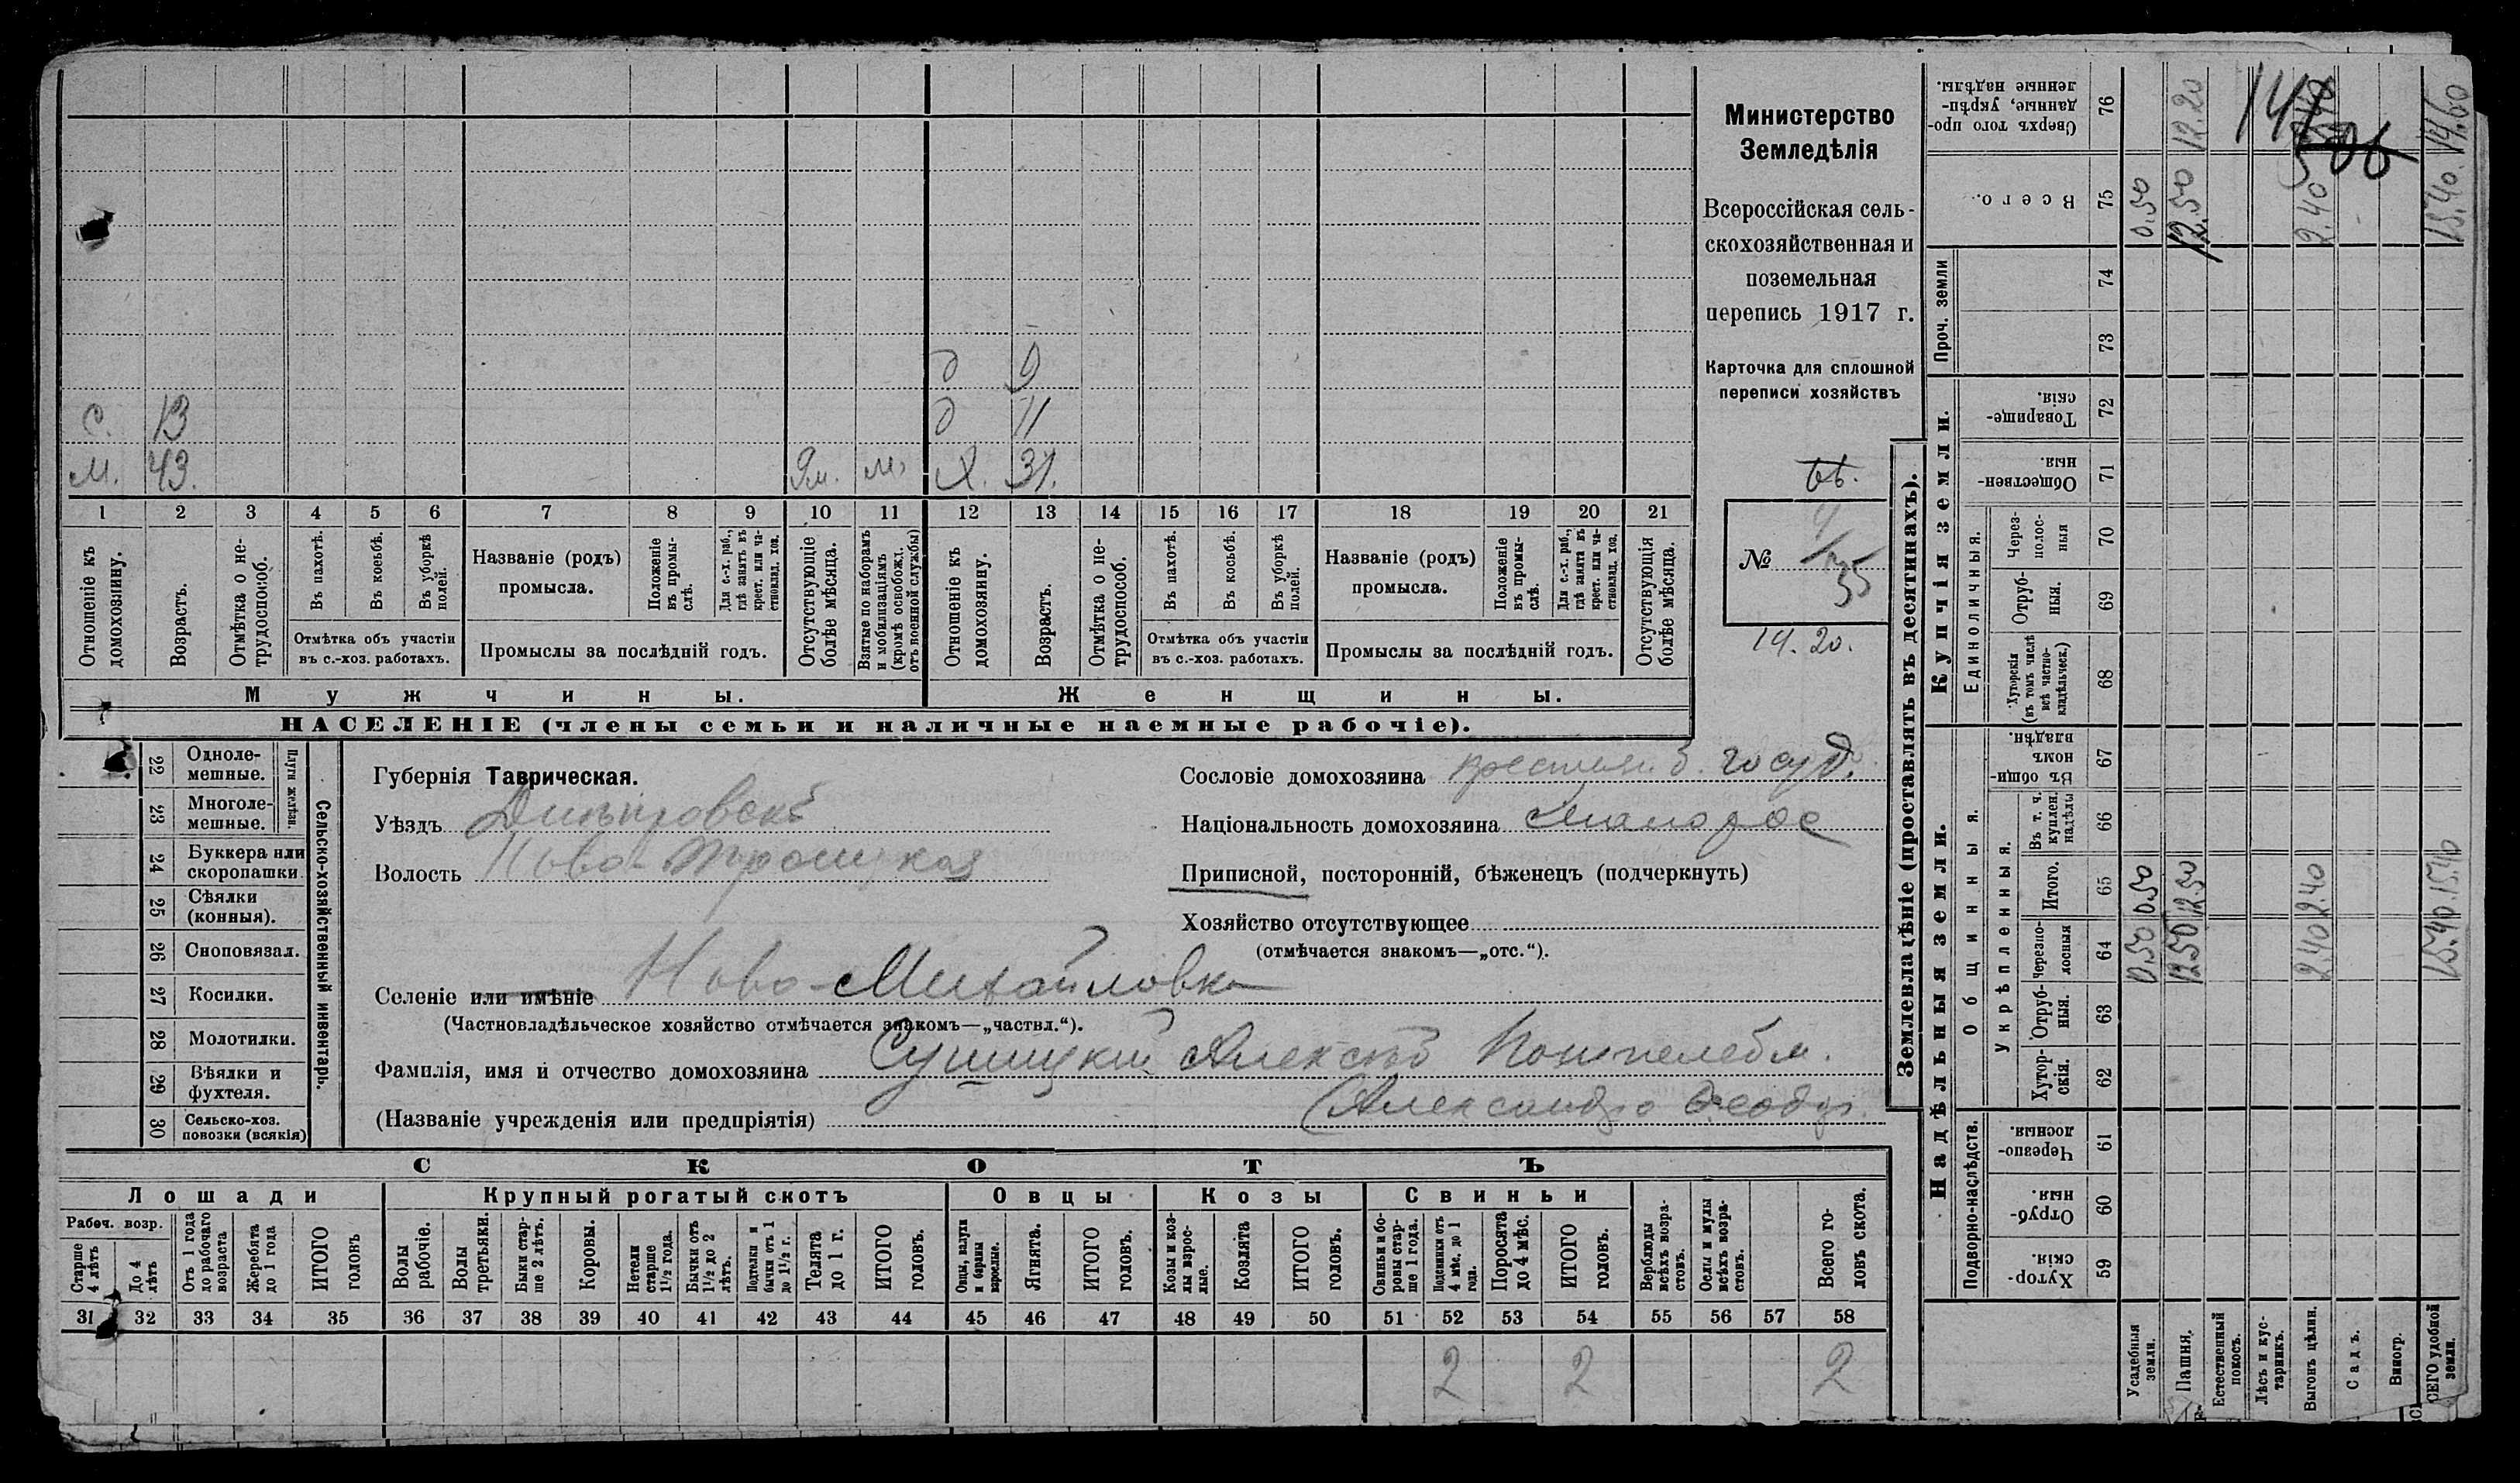 Министерство
Земледѣлія
Всероссійская сель-
скохозяйственная и
поземельная
перепись 1917 г.
Карточка для сплошной
переписи хозяйствъ
№ 35
14.20.
д 9
с. 13 д 11
м. 43. м. 31.
1 2 3 4 5 6 7 8 9 10 11 12 13 14 15 16 17 18 19 20 21
Отношеніе къ домохозяину.
Возрастъ.
Отмѣтка о не-трудоспособ.
Въ пахотѣ.
Въ косьбѣ.
Въ уборкѣ полей.
Отмѣтка объ участіи
въ с.-хоз. работахъ.
Названіе (родъ)
промысла.
Положеніе въ промы-слѣ.
Для с.-х. раб., гдѣ занятъ въ крест. или ча-стновлад. хоз.
Промыслы за послѣдній годъ.
Отсутствующіе болѣе мѣсяца.
Взятые по наборамъ и мобилизаціямъ (кромѣ освобожд. отъ военной службы)
Отношеніе къ домохозяину.
Возрастъ.
Отмѣтка о не-трудоспособ.
Въ пахотѣ.
Въ косьбѣ.
Въ уборкѣ полей.
Отмѣтка объ участіи
въ с.-хоз. работахъ.
Названіе (родъ)
промысла.
Положеніе въ промы-слѣ.
Для с.-х. раб., гдѣ занята въ крест. или ча-стновлад. хоз.
Промыслы за послѣдній годъ.
Отсутствующія болѣе мѣсяца.
Мужчины. Женщины.
НАСЕЛЕНІЕ (члены семьи и наличные наемные рабочіе).
Сельско-хозяйственный инвентарь.
Плуги желѣзн.
22 Одноле-мешные.
23 Многоле-мешные.
24 Буккера или скоропашки
25 Сѣялки (конныя).
26 Сноповязал.
27 Косилки.
28 Молотилки.
29 Вѣялки и фухтеля.
30 Сельско-хоз. повозки (всякія)
Губернія Таврическая.
Уѣздъ Днѣпровскій
Волость Ново-Троицкая
Сословіе домохозяина крестьян. б. госуд.
Національность домохозяина Малорос
Приписной, посторонній, бѣженецъ (подчеркнуть)
Хозяйство отсутствующее
(отмѣчается знакомъ—„отс.“).
Селеніе или имѣніе Ново-Михайловка
(Частновладѣльческое хозяйство отмѣчается знакомъ—„частвл.“).
Фамилія, имя и отчество домохозяина Сушицкій
(Названіе учрежденія или предпріятія) (Александръ
СКОТЪ
Лошади Крупный рогатый скотъ Овцы Козы Свиньи
Рабоч. возр.
Старше 4 лѣтъ
До 4 лѣтъ
Отъ 1 года до рабочаго возраста
Жеребята до 1 года
ИТОГО головъ
Волы рабочіе.
Волы третьяки.
Быки стар-ше 2 лѣтъ.
Коровы.
Нетели старше 1½ года.
Бычки отъ 1½ до 2 лѣтъ.
Подтелки и бычки отъ 1 до 1½ г.
Телята до 1 г.
ИТОГО головъ.
Овцы, валухи и бараны взрослые.
Ягнята.
ИТОГО головъ.
Козы и коз-лы взрос-лые.
Козлята
ИТОГО головъ.
Свиньи и бо-ровы стар-ше 1 года.
Подсвинки отъ 4 мѣс. до 1 года.
Поросята до 4 мѣс.
ИТОГО головъ.
Верблюды всѣхъ возра-стовъ.
Ослы и мулы всѣхъ возра-стовъ.
Всего го-ловъ скота.
31 32 33 34 35 36 37 38 39 40 41 42 43 44 45 46 47 48 49 50 51 52 53 54 55 56 57 58
2 2 2
Землевладѣніе (проставлять въ десятинахъ).
Надѣльныя земли.
Купчія земли.
Проч. земли
Подворно-наслѣдств.
Общинныя.
Укрѣпленныя.
Единоличныя.
Сверхъ того про-данные, укрѣп-ленные надѣлы. 76
Всего. 75
74
73
Товарище-скія. 72
Обществен-ныя. 71
Через-полос-ныя 70
Отруб-ныя. 69
Хуторскія (въ томъ числѣ всѣ частно-владѣльческ.) 68
Въ общи-номъ владѣн. 67
Въ т. ч. куплен. надѣлы 66
Итого. 65
Черезпо-лосныя 64
Отруб-ныя. 63
Хутор-скія. 62
Черезпо-лосныя. 61
Отруб-ныя. 60
Хутор-скія. 59
Усадебныя земли. 0.50 0.50 0.50
Пашня. 12.50 12.50 12.50 12.20
Естественный покосъ.
Лѣсъ и кус-тарникъ.
Выгонъ цѣлин. 2.40 2.40 2.40
Садъ.
Виногр.
СЕГО удобной земли. 15.40 15.40 15.40 14.60